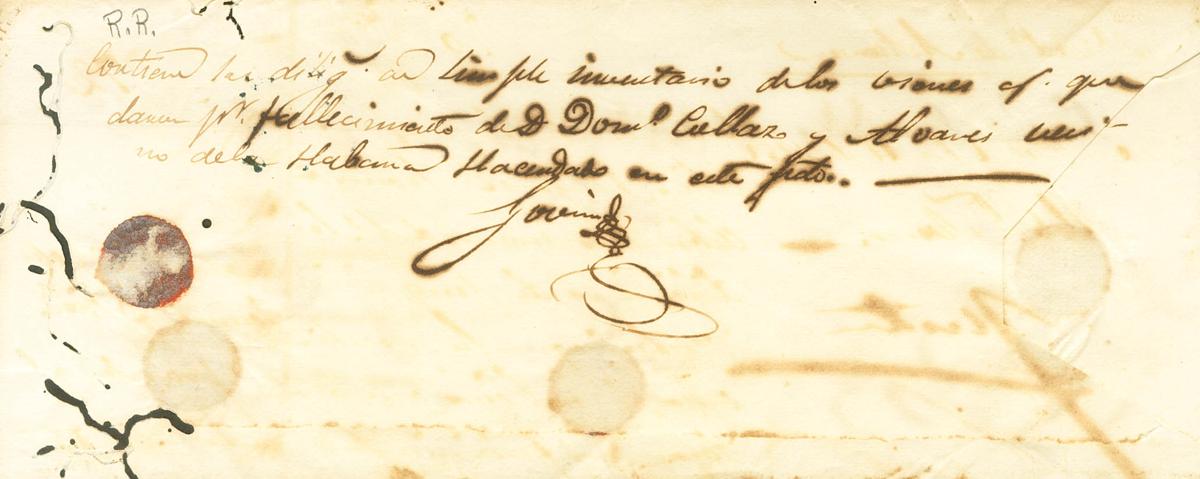 R.R.
Contiene las dilig.s de simple inventario de los vienes q.e que
daron p.r fallecimiento de D. Dom.o Collazo y Alvares veci-
no de la Habana Hacendado en este